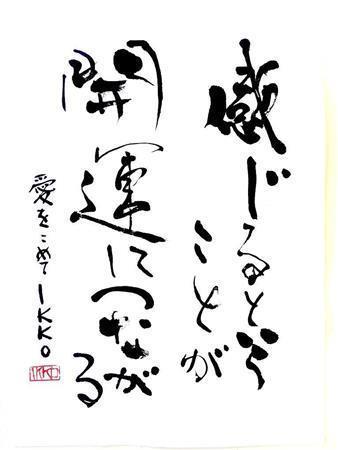 感じるという
ことが
開運につながる
愛をこめてIKKO
IKKO